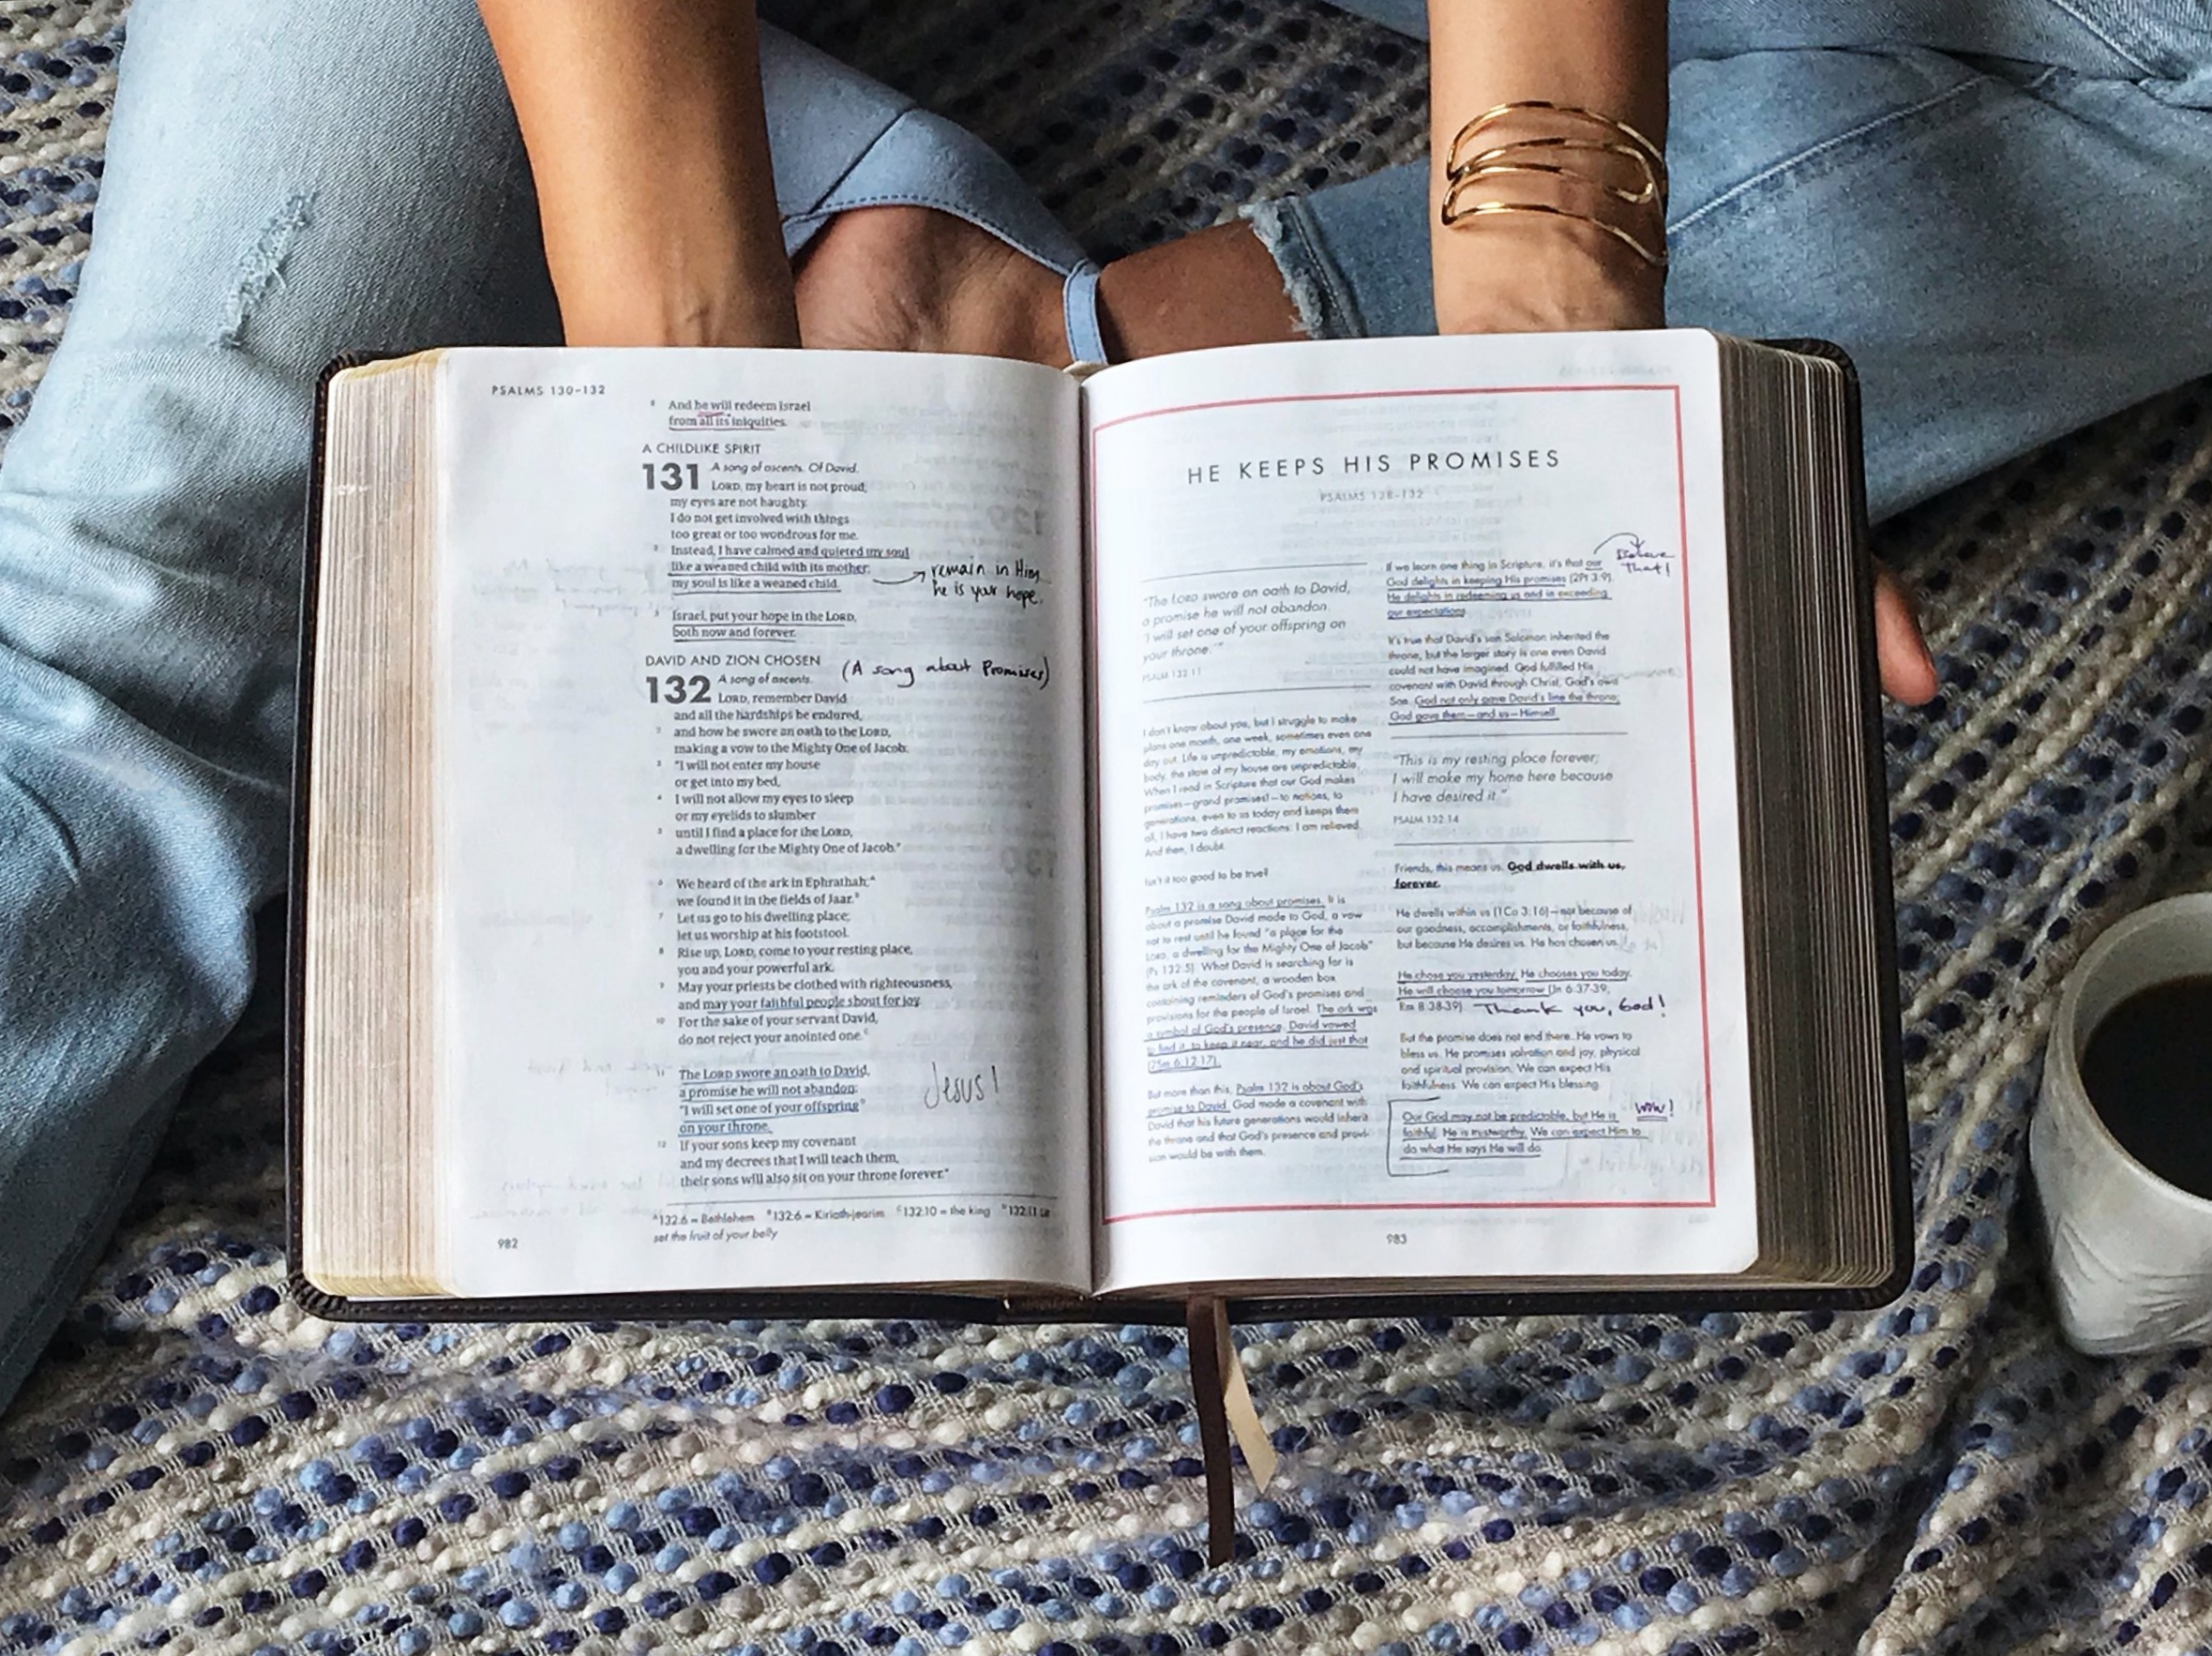 PSALMS 130–132
8 And he will redeem Israel
from all its iniquities.
A CHILDLIKE SPIRIT
131 A song of ascents. Of David.
LORD, my heart is not proud;
my eyes are not haughty.
I do not get involved with things
too great or too wondrous for me.
2 Instead, I have calmed and quieted my soul
like a weaned child with its mother;
my soul is like a weaned child.
remain in Him
he is your hope.
3 Israel, put your hope in the LORD,
both now and forever.
DAVID AND ZION CHOSEN
(A song about Promises)
132 A song of ascents.
LORD, remember David
and all the hardships he endured,
2 and how he swore an oath to the LORD,
making a vow to the Mighty One of Jacob:
3 "I will not enter my house
or get into my bed,
4 I will not allow my eyes to sleep
or my eyelids to slumber
5 until I find a place for the LORD,
a dwelling for the Mighty One of Jacob."
6 We heard of the ark in Ephrathah;A
we found it in the fields of Jaar.B
7 Let us go to his dwelling place;
let us worship at his footstool.
8 Rise up, LORD, come to your resting place,
you and your powerful ark.
9 May your priests be clothed with righteousness,
and may your faithful people shout for joy.
10 For the sake of your servant David,
do not reject your anointed one.C
11 The LORD swore an oath to David,
a promise he will not abandon:
"I will set one of your offspringD
on your throne.
Jesus!
12 If your sons keep my covenant
and my decrees that I will teach them,
their sons will also sit on your throne forever."
A132:6 = Bethlehem B132:6 = Kiriath-jearim C132:10 = the king D132:11 Lit
set the fruit of your belly
982
HE KEEPS HIS PROMISES
PSALMS 128–132
"The LORD swore an oath to David,
a promise he will not abandon:
"I will set one of your offspring on
your throne.'"
PSALM 132:11
I don't know about you, but I struggle to make
plans one month, one week, sometimes even one
day out. Life is unpredictable, my emotions, my
body, the state of my house are unpredictable.
When I read in Scripture that our God makes
promises—grand promises!—to nations, to
generations, even to us today and keeps them
all, I have two distinct reactions: I am relieved.
And then, I doubt.
Isn't it too good to be true?
Psalm 132 is a song about promises. It is
about a promise David made to God, a vow
not to rest until he found "a place for the
LORD, a dwelling for the Mighty One of Jacob"
(Ps 132:5). What David is searching for is
the ark of the covenant, a wooden box
containing reminders of God's promises and
provisions for the people of Israel. The ark was
a symbol of God's presence. David vowed
to find it, to keep it near, and he did just that
(2Sm 6:12-17).
But more than this, Psalm 132 is about God's
promise to David. God made a covenant with
David that his future generations would inherit
the throne and that God's presence and provi-
sion would be with them.
If we learn one thing in Scripture, it's that our
God delights in keeping His promises (2Pt 3:9).
He delights in redeeming us and in exceeding
our expectations.
Believe
That!
It's true that David's son Solomon inherited the
throne, but the larger story is one even David
could not have imagined. God fulfilled His
covenant with David through Christ, God's own
Son. God not only gave David's line the throne;
God gave them—and us—Himself.
"This is my resting place forever;
I will make my home here because
I have desired it."
PSALM 132:14
Friends, this means us. God dwells with us,
forever.
He dwells within us (1Co 3:16)—not because of
our goodness, accomplishments, or faithfulness,
but because He desires us. He has chosen us.
He chose you yesterday. He chooses you today.
He will choose you tomorrow (Jn 6:37-39,
Rm 8:38-39). Thank you, God!
But the promise does not end there. He vows to
bless us. He promises salvation and joy, physical
and spiritual provision. We can expect His
faithfulness. We can expect His blessing.
Our God may not be predictable, but He is
faithful. He is trustworthy. We can expect Him to
do what He says He will do.
wow!
983